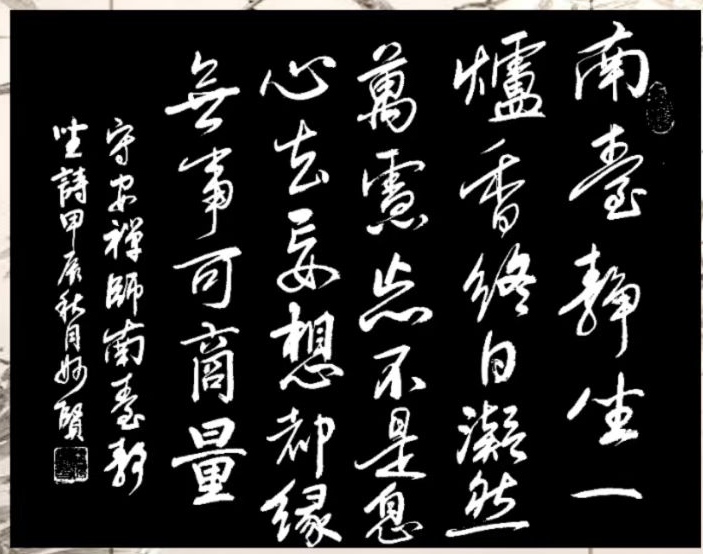 南臺靜坐一
爐香終日凝然
萬慮忘不是息
心去妄想都緣
無事可商量
守安禪師南臺靜
坐詩甲辰秋月妙賢